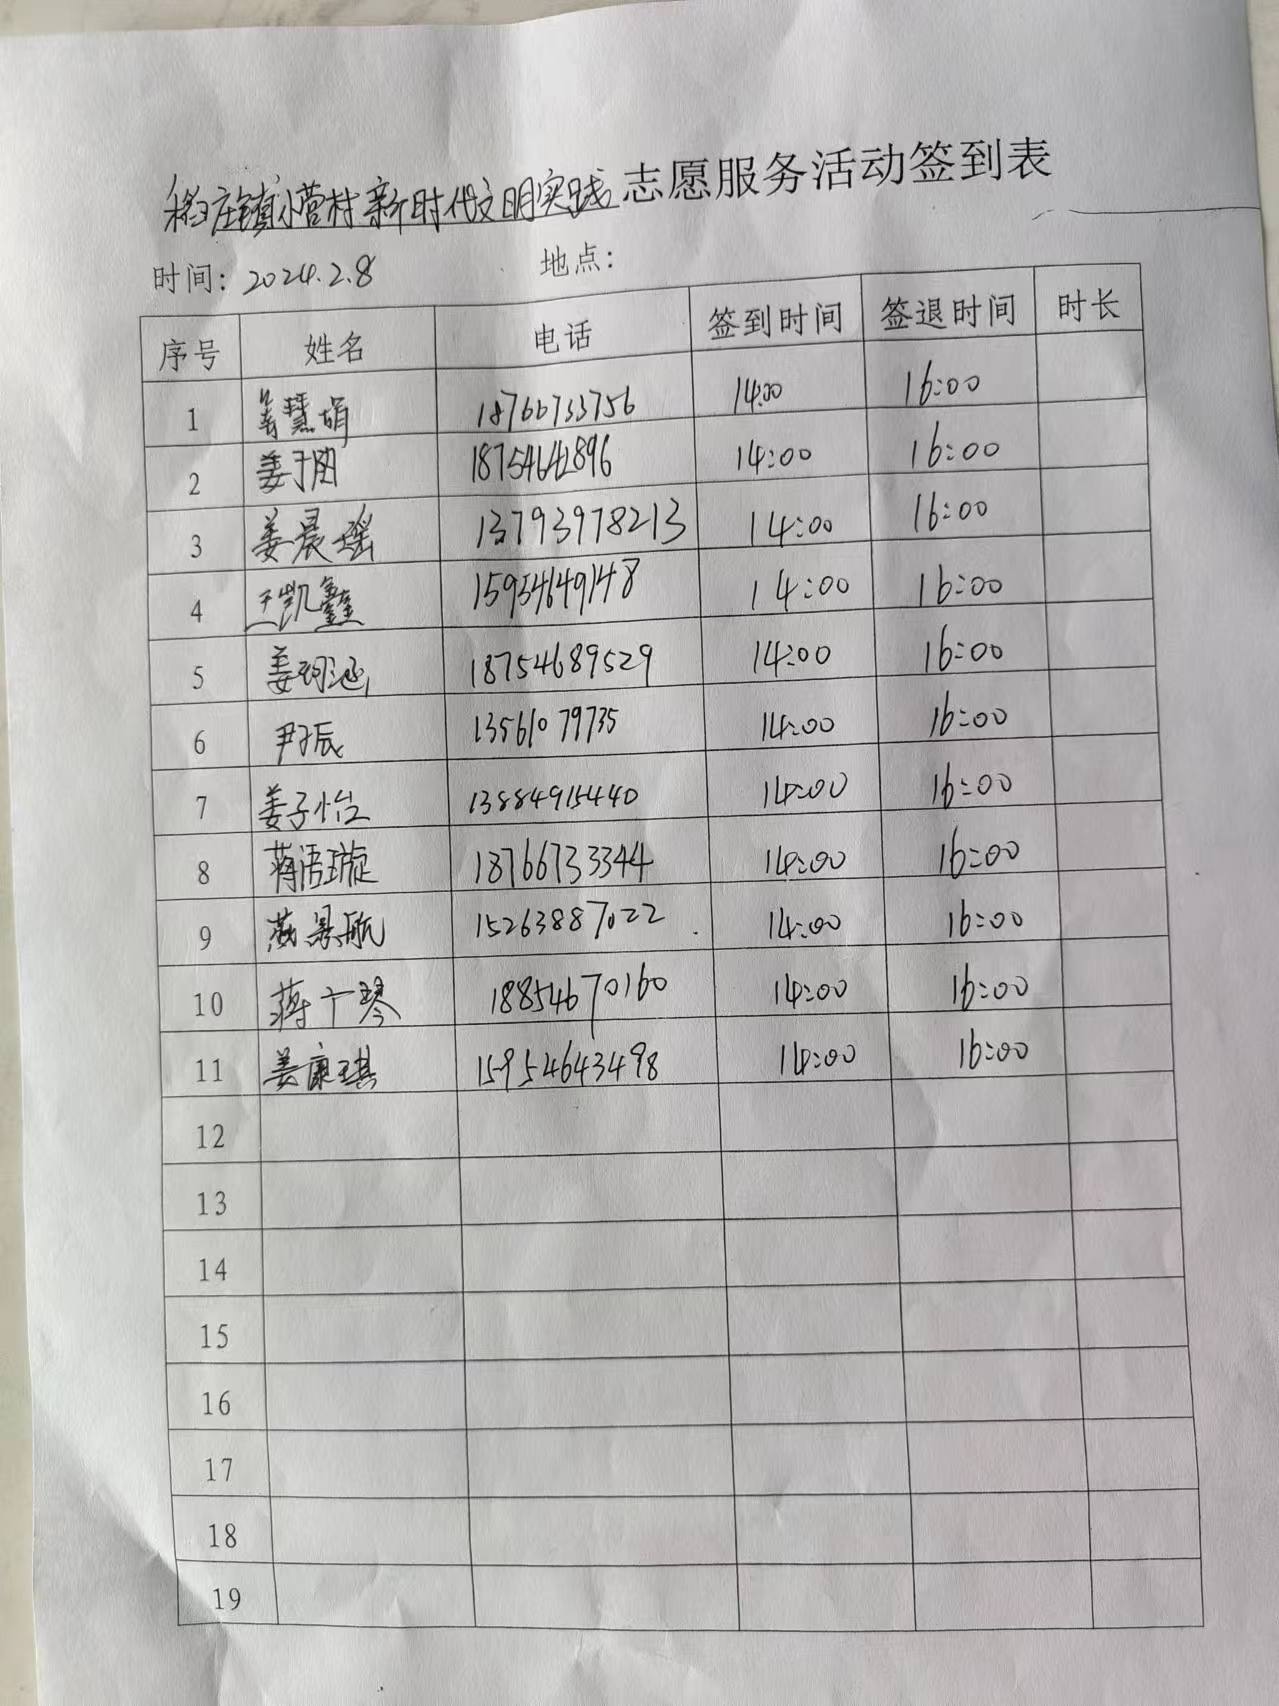 稻庄镇小营村新时代文明实践志愿服务活动签到表
时间：2024.2.8 地点：
序号 姓名 电话 签到时间 签退时间 时长
1 姜慧娟 18766733756 14:00 16:00
2 姜子图 18754642896 14:00 16:00
3 姜晨瑶 13793978213 14:00 16:00
4 王凯鑫 15954649148 14:00 16:00
5 姜珂涵 18754689529 14:00 16:00
6 尹子辰 13561079735 14:00 16:00
7 姜子怡 13884915440 14:00 16:00
8 蒋语璇 18766733344 14:00 16:00
9 燕景航 15263887022 14:00 16:00
10 蒋琴 18854670160 14:00 16:00
11 姜康琪 15954643498 14:00 16:00
12
13
14
15
16
17
18
19